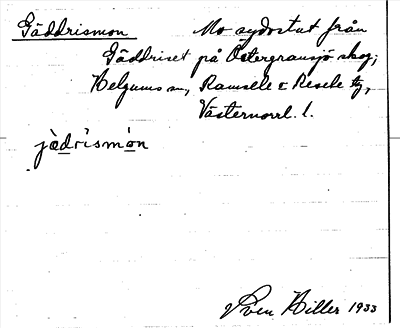 Gäddrismon Mo sydostut från
Gäddriset på Östergransjö skog,
Helgums sn, Ramsele & Resele tg,
Västernorrl. l.
jædrismon
Sven Hiller 1933